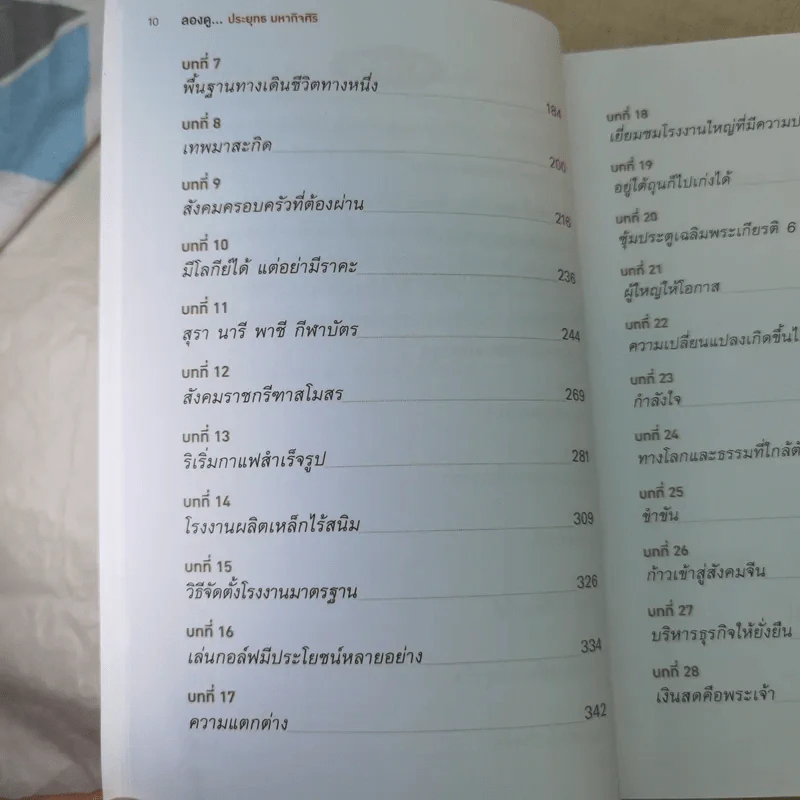 10 ลองดู... ประยุทธ มหากิจศิริ
บทที่ 7
พื้นฐานทางเดินชีวิตทางหนึ่ง 184
บทที่ 8
เทพมาสะกิด 200
บทที่ 9
สังคมครอบครัวที่ต้องผ่าน 216
บทที่ 10
มีโลกีย์ได้ แต่อย่ามีราคะ 236
บทที่ 11
สุรา นารี พาชี กีฬาบัตร 244
บทที่ 12
สังคมราชกรีฑาสโมสร 269
บทที่ 13
ริเริ่มกาแฟสำเร็จรูป 281
บทที่ 14
โรงงานผลิตเหล็กไร้สนิม 309
บทที่ 15
วิธีจัดตั้งโรงงานมาตรฐาน 326
บทที่ 16
เล่นกอล์ฟมีประโยชน์หลายอย่าง 334
บทที่ 17
ความแตกต่าง 342
บทที่ 18
เยี่ยมชมโรงงานใหญ่ที่มีความ
บทที่ 19
อยู่ใต้ถุนก็ไปเก่งได้
บทที่ 20
ซุ้มประตูเฉลิมพระเกียรติ 6
บทที่ 21
ผู้ใหญ่ให้โอกาส
บทที่ 22
ความเปลี่ยนแปลงเกิดขึ้น
บทที่ 23
กำลังใจ
บทที่ 24
ทางโลกและธรรมที่ใกล้
บทที่ 25
ขำขัน
บทที่ 26
ก้าวเข้าสู่สังคมจีน
บทที่ 27
บริหารธุรกิจให้ยั่งยืน
บทที่ 28
เงินสดคือพระเจ้า